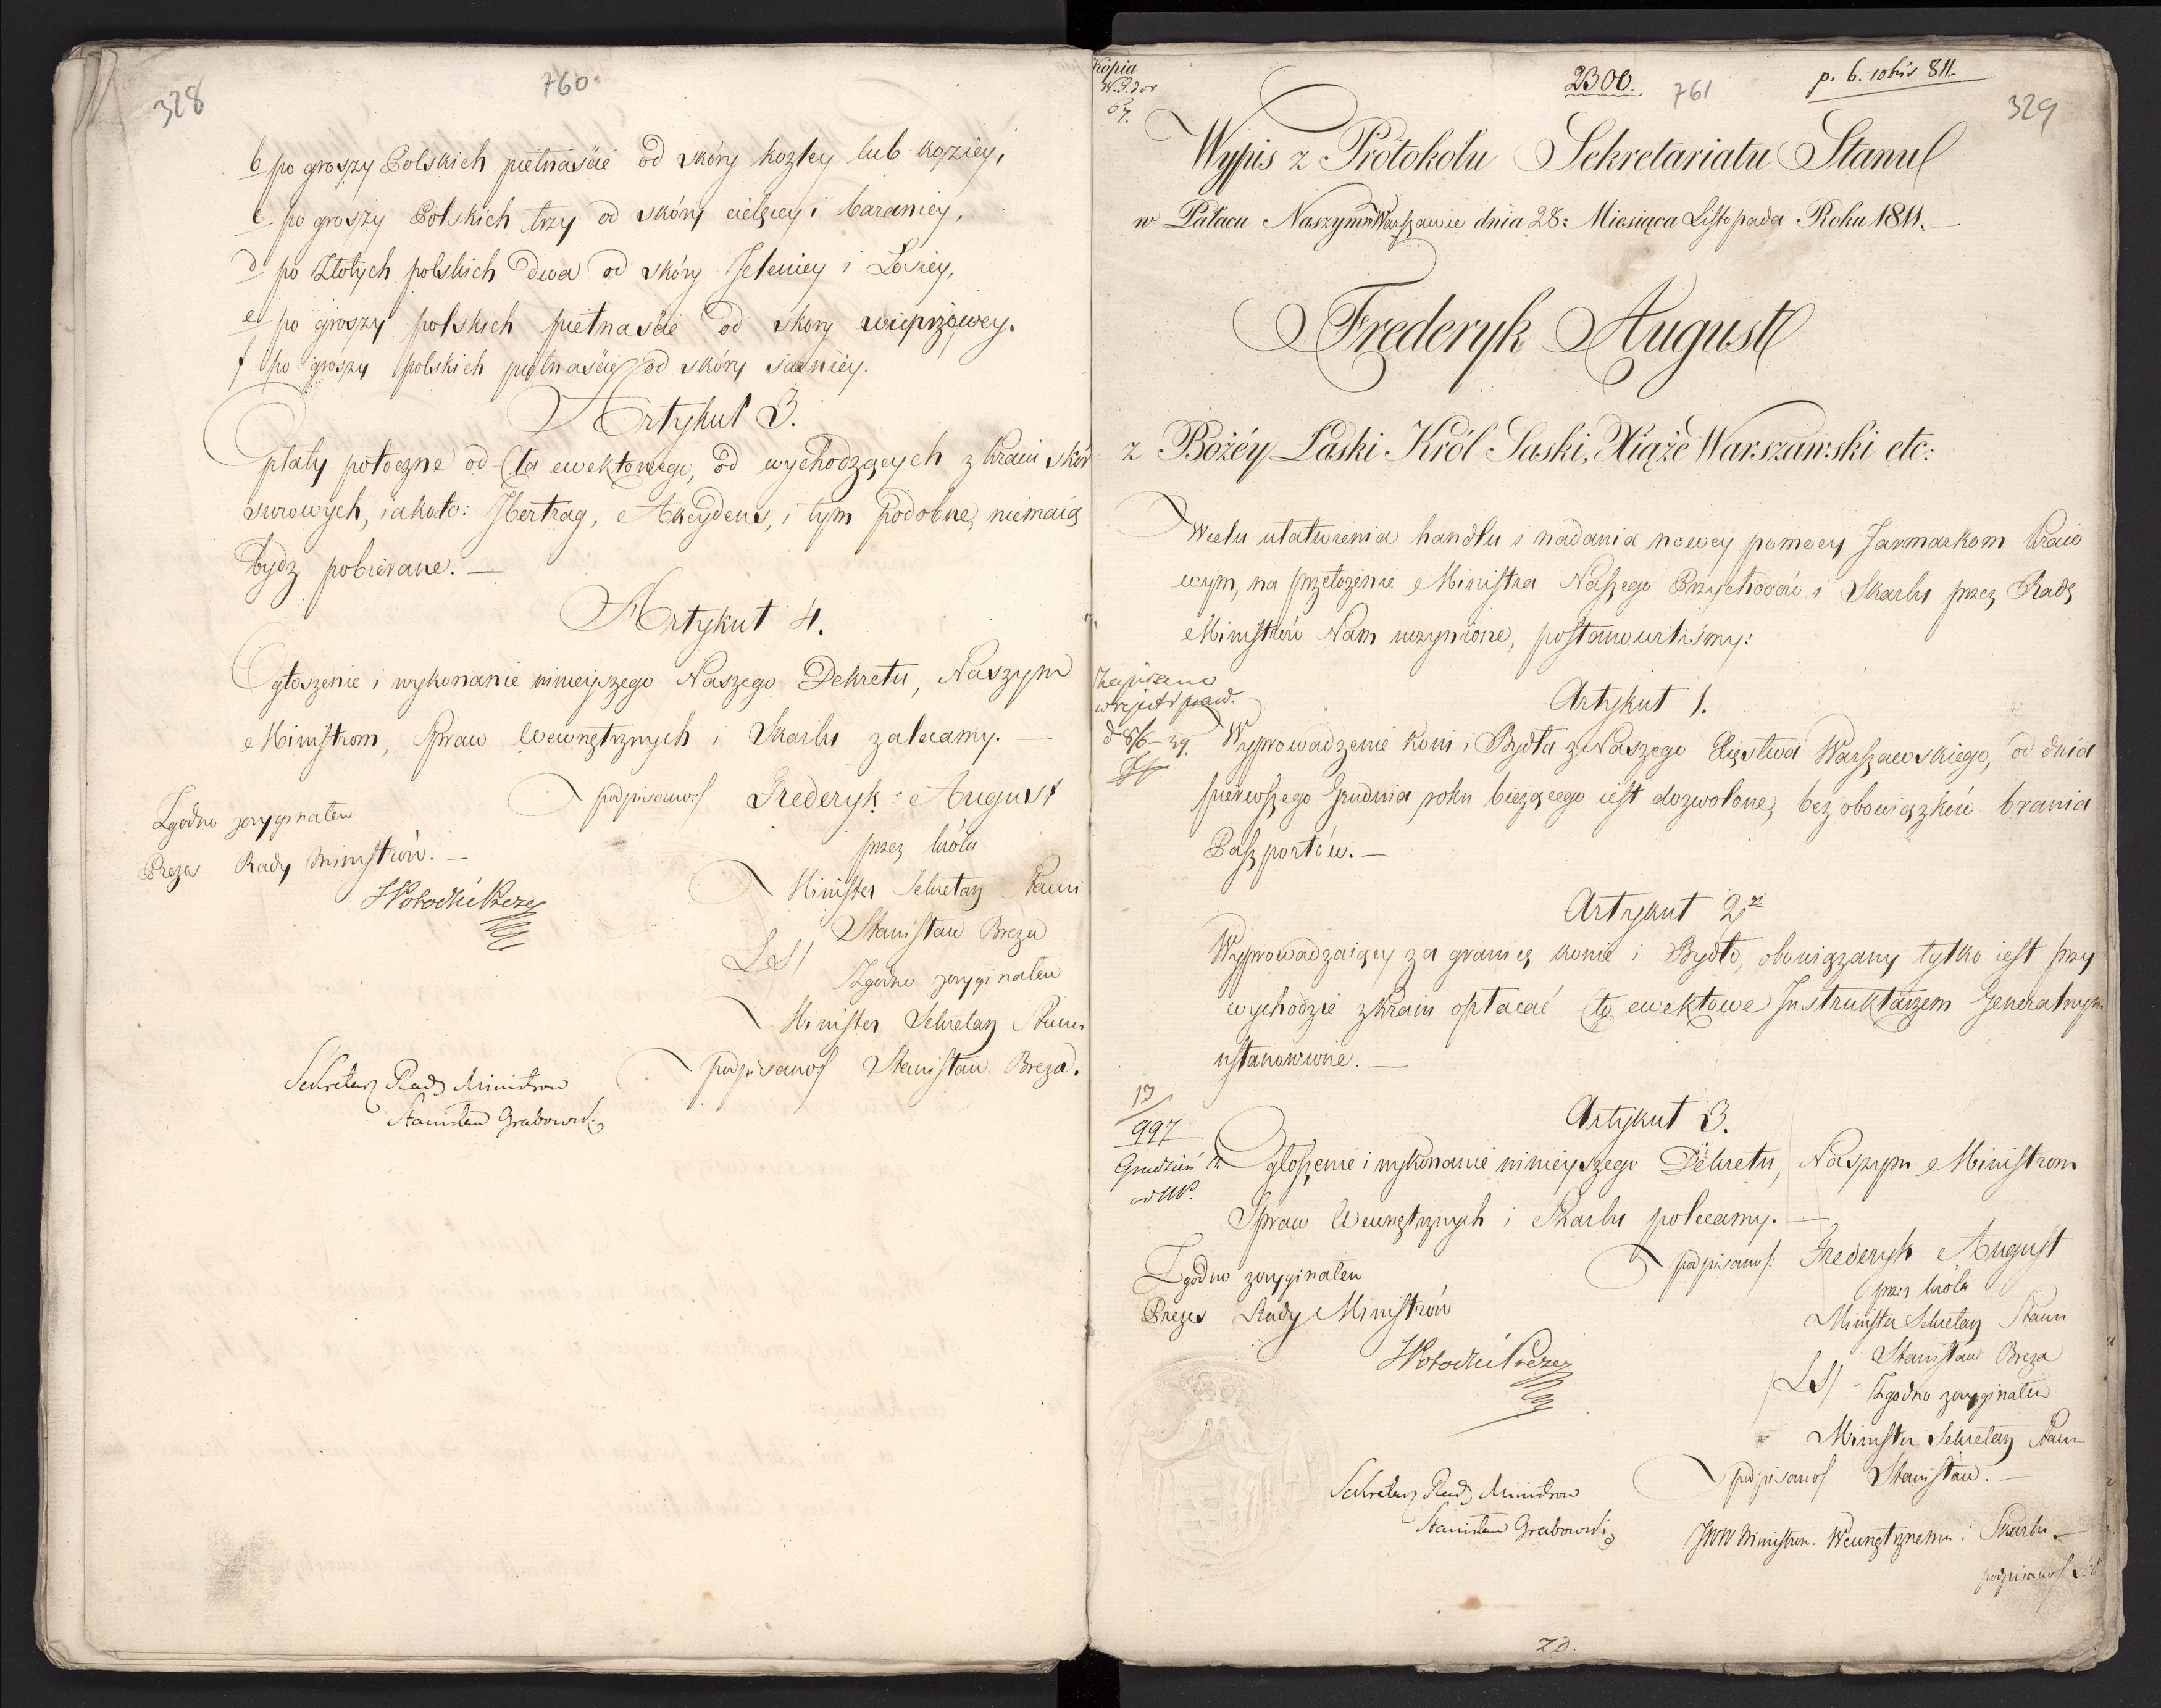 328
760
b po groszy Polskich piętnaście od skóry kozłey lub koziey,
c po groszy Polskich trzy od skóry cielęcey i baraniey,
d po Złotych polskich dwa od skóry Jeleniey i Łosiey,
e po groszy polskich piętnaście od skory wieprzowey.
f po groszy polskich piętnaście od skóry sarniey.
Artykuł 3.
Opłaty poboczne od Cła ewektowego, od wychodzących z kraiu skór
surowych, iakoto: Hertrag, Akcydens, i tym podobne, niemaią
bydz pobierane. —
Artykuł 4.
Ogłoszenie i wykonanie ninieyszego Naszego Dekretu, Naszym
Ministrom, Spraw Wewnętrznych i Skarbu zalecamy. —
podpisano:/ Frederyk August
przez króla
Minister Sekretarz Stanu
Stanisław Breza
LS/ Zgodno zoryginałem
Minister Sekretarz Stanu
podpisano/ Stanisław Breza.
Zgodno zoryginałem
Prezes Rady Ministrów. —
Sekretarz Rady Ministrow
Stanisław Grabowski
Kopia
2300.
761
p. 6. 10bris 811.
329
Wypis z Protokołu Sekretariatu Stanu
w Pałacu Naszym w Warszawie dnia 28: Miesiąca Listopada Roku 1811. —
Frederyk August
z Bożéy Łaski Król Saski, Xiąże Warszawski etc:
W celu ułatwienia handlu i nadania nowey pomocy Jarmarkom kraio
wym, na przełożenie Ministra Naszego Przychodów i Skarbu przez Radę
Ministrów Nam uczynione, postanowiliśmy:
Artykuł 1.
Wyprowadzenie koni i Bydła z Naszego Xięstwa Warszawskiego, od dnia
pierwszego Grudnia roku bieżącego iest dozwolone, bez obowiązków brania
Paszportów. —
Artykuł 2.
Wyprowadzaiący za granicę konie i Bydło, obowiązany tylko iest przy
wychodzie z kraiu opłacać Cło ewektowe Instruktarzem Generalnym
ustanowione. —
13
997
Grudzień
Artykuł 3.
Ogłoszenie i wykonanie ninieyszego Dekretu, Naszym Ministrom
Spraw Wewnętrznych i Skarbu polecamy. —
podpisano/: Frederyk August
przez króla
Minister Sekretarz Stanu
Stanisław Breza
LS/ Zgodno zoryginałem
Minister Sekretarz Stanu
podpisano/ Stanisław. —
Zgodno zoryginałem
Prezes Rady Ministrów
Sekretarz Rady Ministrow
Stanisław Grabowski
JWW Ministrom. Wewnętrznemu i Skarbu —